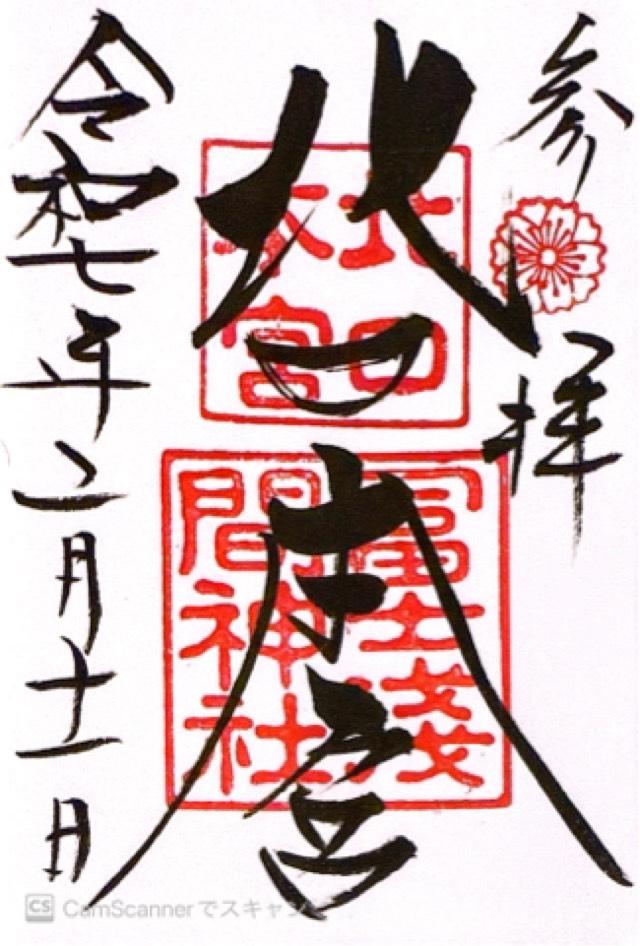 参拝
北口本宮
北口
本宮
冨士淺
間神社
令和七年二月十一日
CS CamScannerでスキャン